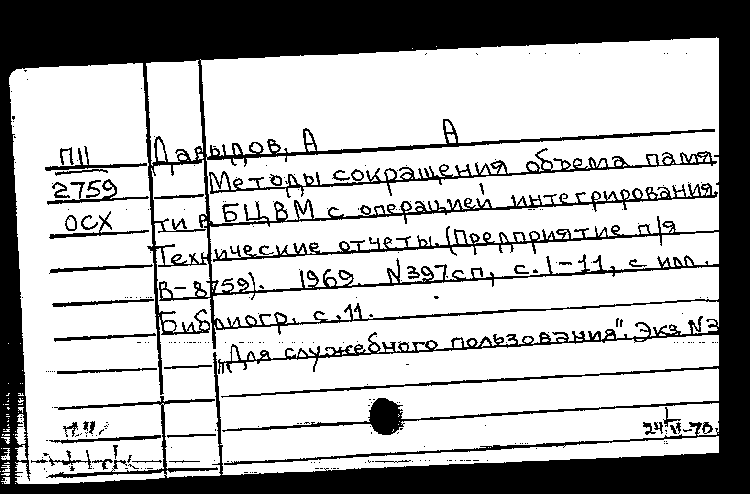 П11 Давыдов, А А
2759 Методы сокращения объема памя-
ОСХ ти в БЦВМ с операцией интегрирования.
Технические отчеты. (Предприятие п/я
В-8759). 1969. N397сп, с.1-11, с илл.
Библиогр. с.11.
„Для служебного пользования". Экз N3
24 VI-70.